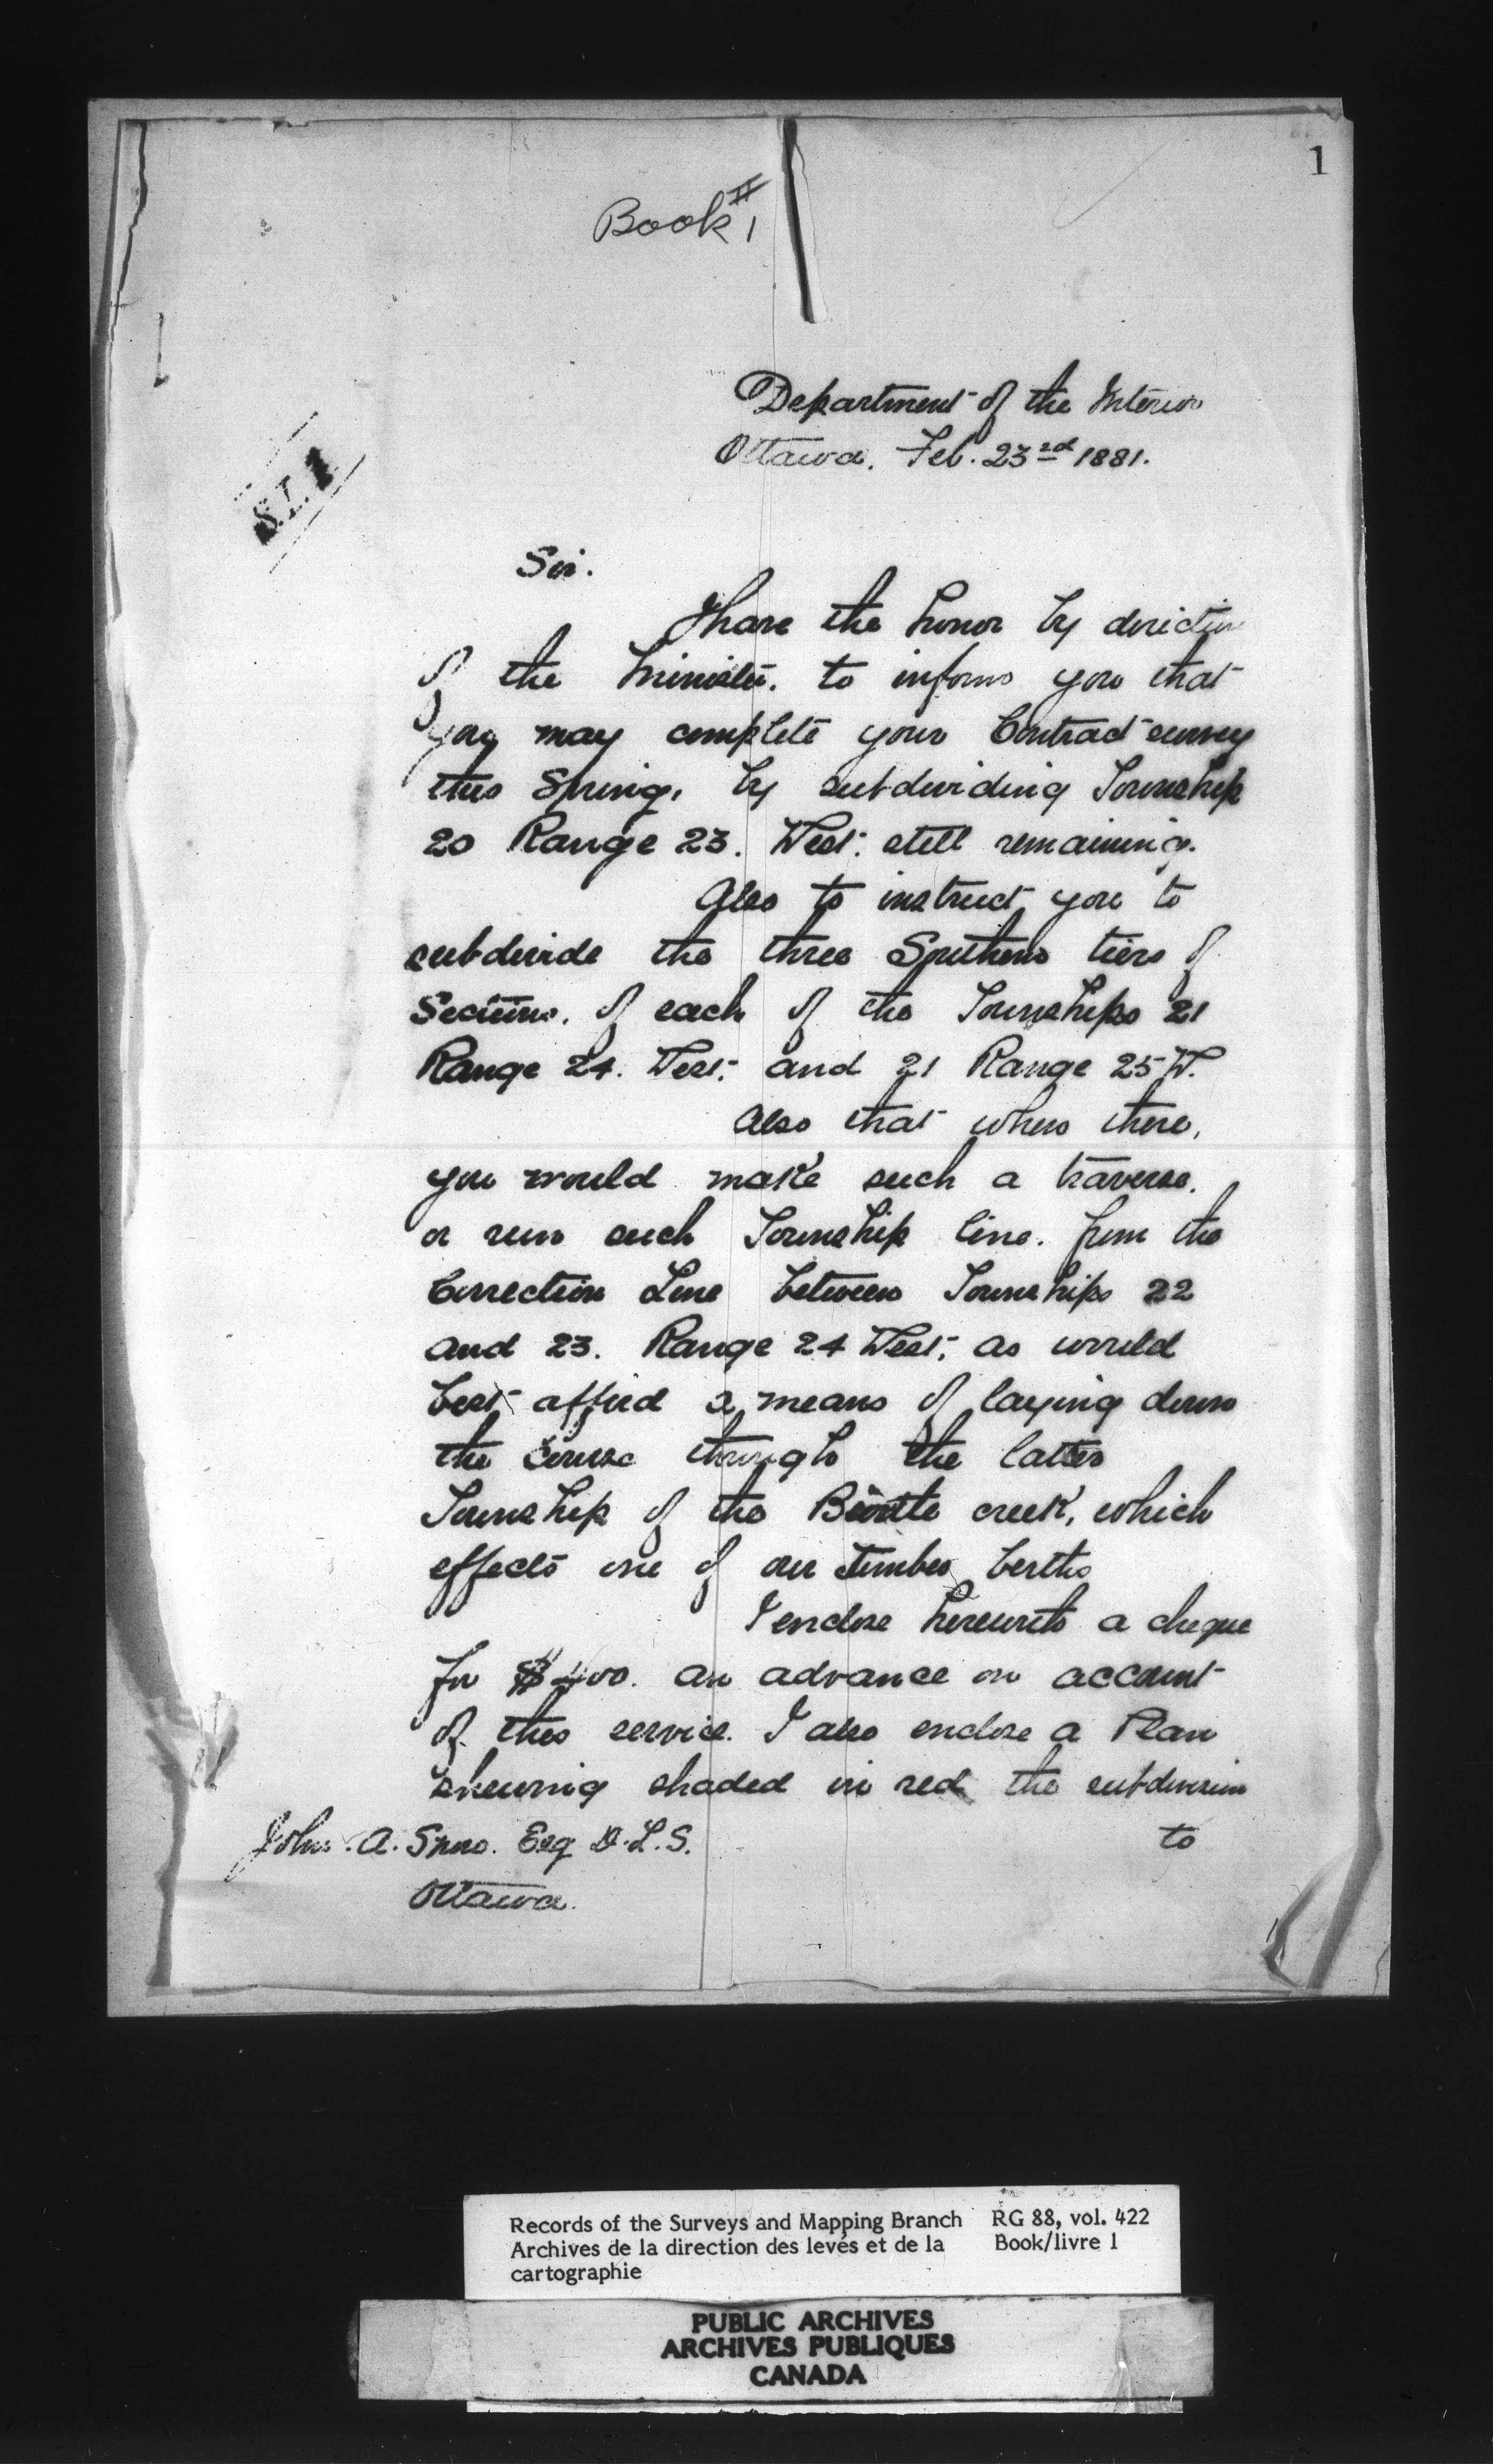 1
Book # 1
Department of the Interior
Ottawa. Feb. 23rd 1881.
S.I. 1
Sir.
I have the honor by direction
of the Minister. to inform you that
you may complete your Contract survey
this Spring, by subdividing Township
20 Range 23. West. still remaining.
Also to instruct you to
subdivide the three Southern tiers of
Sections. of each of the Townships 21
Range 24. West. and 21 Range 25 W.
Also that when there,
you would make such a traverse.
or run such Township line. from the
Correction Line between Townships 22
and 23. Range 24 West, as would
best afford a means of laying down
the course through the latter
Township of the creek, which
effects one of our Timber berths
I enclose herewith a cheque
for $400. an advance on account
of this service. I also enclose a Plan
shewing shaded in red the subdivision
to
John. A. Snow. Esq D.L.S.
Ottawa.
Records of the Surveys and Mapping Branch RG 88, vol. 422
Archives de la direction des levés et de la Book/livre 1
cartographie
PUBLIC ARCHIVES
ARCHIVES PUBLIQUES
CANADA